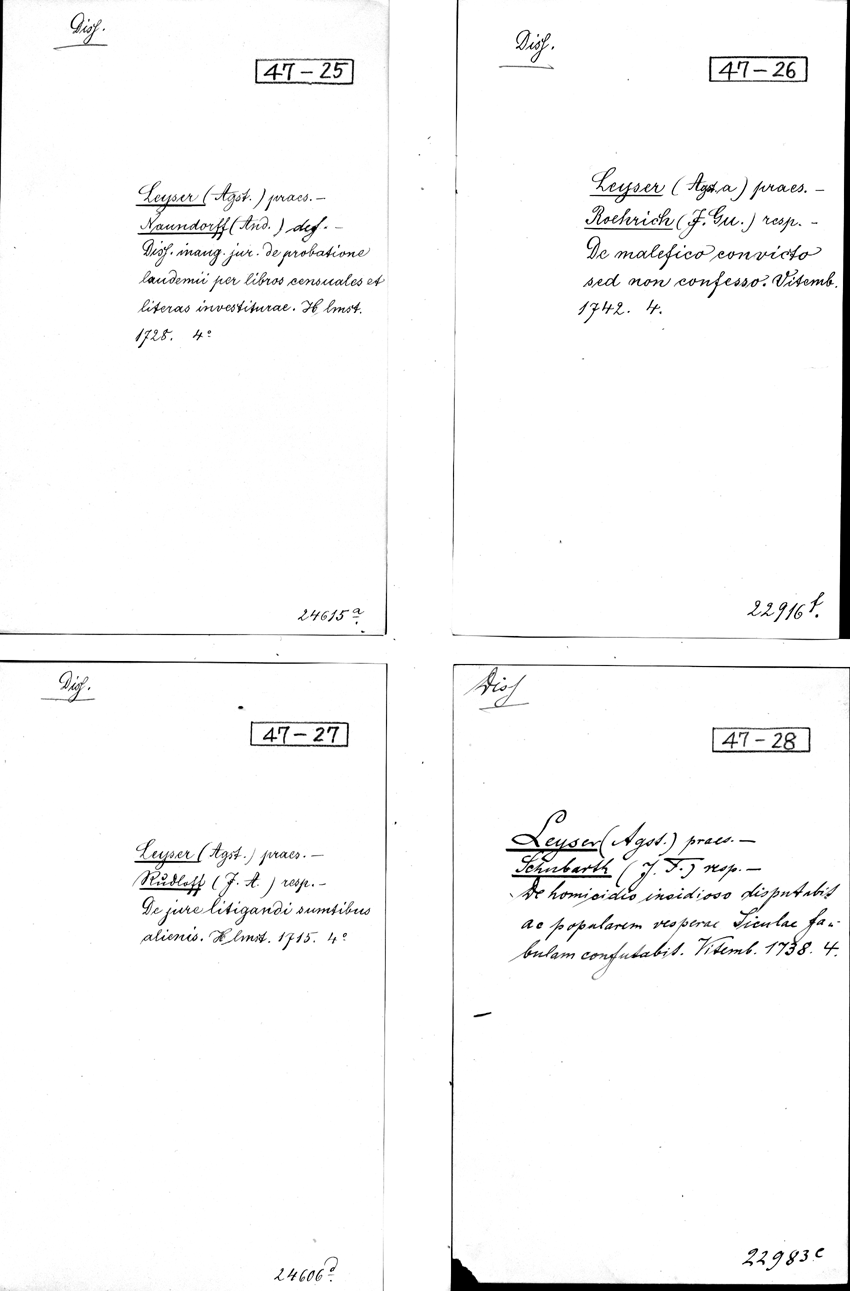 Diss.
47-25
Leyser (Agst.) praes. —
Naundorff (And.) def. —
Diss. inaug. jur. de probatione
laudemii per libros censuales et
literas investiturae. Hlmst.
1728. 4°
24615 a.
Diss.
47-26
Leyser (Agst. a) praes. —
Roehrich (J. Gu.) resp. —
De malefico convicto
sed non confesso. Vitemb.
1742. 4.
22916 f.
Diss.
47-27
Leyser (Agst.) praes. —
Rudloff (J. A.) resp. —
De jure litigandi sumtibus
alienis. Hlmst. 1715. 4°
24606 d.
Diss
47-28
Leyser (Agst.) praes. —
Schubarth (J. T.) resp. —
De homicidio insidioso disputabit
ac popularem vesperae Siculae fa-
bulam confutabit. Vitemb. 1738. 4.
22983 c